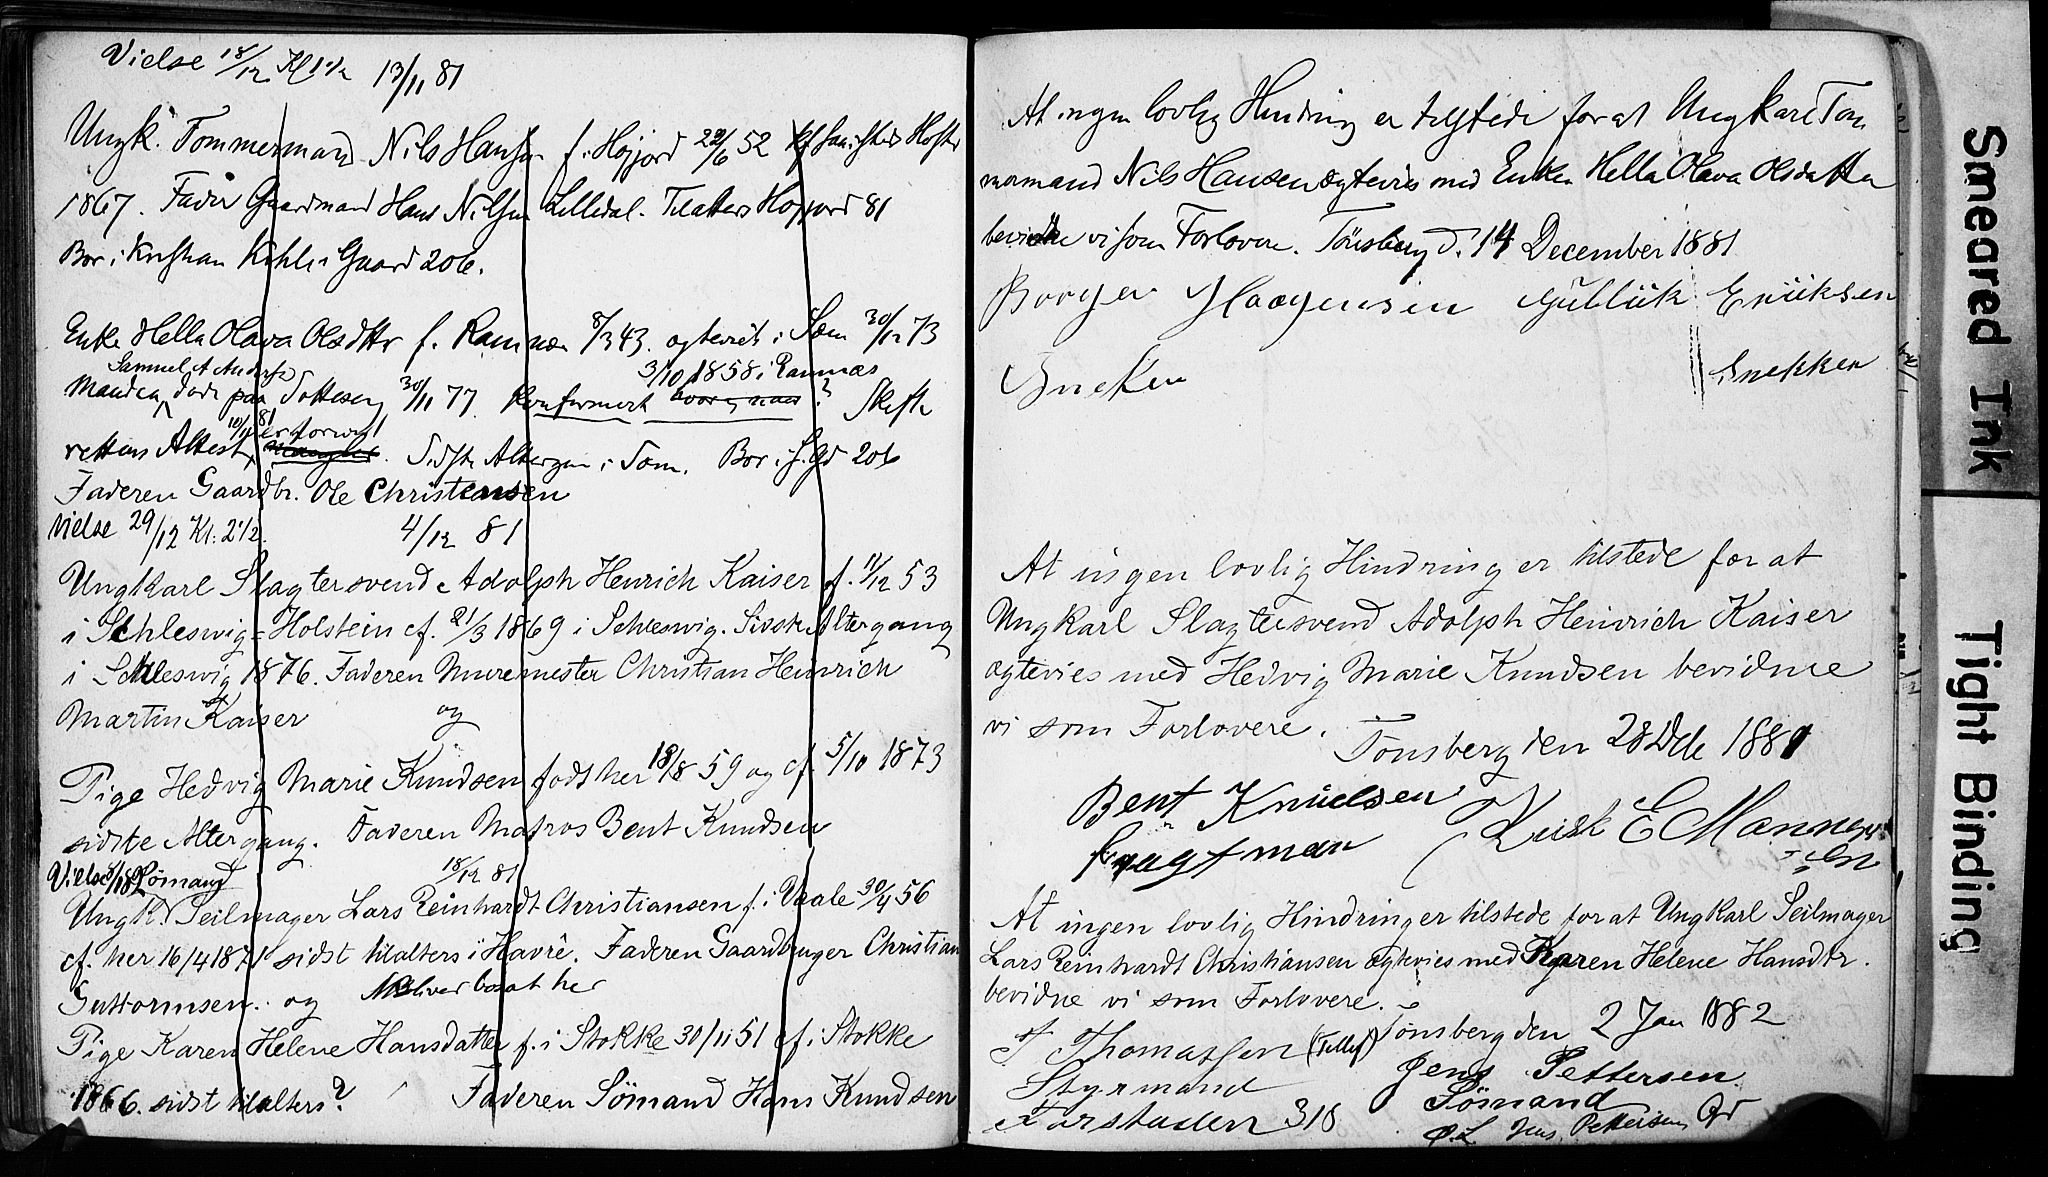 Vielse 18/12 Kl 1½ 13/11 81
Ungk. Tømmermand Nils Hansen f. i Højjord 22/6 52 Højjord
1867. Fader Gaardmand Hans Nilsen Lilledal. Tilalters Højjord 81
Bor i Gaard 206.
Enke Hella Olava Olsdttr f. Ramnæs 8/3 43. ægteviet i Sem 30/12 73
Samuel A Anders 3/10 1858 i Ramnæs
Manden døde paa 30/11 77. Konfirmert ? Skifte
10/11 81
rettens Attest mangler. Sidste Altergang i Søm. Bor i 206
Faderen Gaardbr. Ole Christensen
Vielse 29/12 Kl. 2½. 4/12 81
Ungkarl Slagtersvend Adolph Henrich Kaiser f. 11/12 53
i Schleswig=Holstein cf. 21/3 1869 i Schleswig. Sidste Altergang
i Schleswig 1876. Faderen Muremester Christian Heinrich
Martin Kaiser og
Pige Hedvig Marie Knudsen født her 18/8 59 og cf. 5/10 1873
sidste Altergang. Faderen Matros Bent Knudsen
Vielse Sømand 18/12 81
Ungk. Seilmager Lars Reinhardt Christiansen f. i Vaale 30/4 56
cf. her 16/4 1871 sidst tilalters i Havre. Faderen Gaardbruger Christian
Guttormsen. og bliver bosat her
Pige Karen Helene Hansdatter f. i Stokke 30/11 51 cf. i Stokke
1866. sidst tilalters? Faderen Sömand Hans Knudsen
At ingen lovlig Hindring er tilstede for at Ungkarl Tøm
mermand Nils Hansen ægtevies med Enken Hella Olava Olsdatter
bevidne vi som Forlovere. Tönsberg d. 14 December 1881
Haagensen Eriksen
Snekken
At ingen lovlig Hindring er tilstede for at
Ungkarl Slagtersvend Adolph Heinrich Kaiser
ægtevies med Hedvig Marie Knudsen bevidne
vi som Forlovere. Tønsberg den 28 Dcb 1881
Bent Knudsen
At ingen lovlig Hindring er tilstede for at Ungkarl Seilmager
Lars Reinhardt Christiansen ægtevies med Karen Helene Hansdtr.
bevidne vi som Forlovere.
Tønsberg den 2 Jan 1882
T Thomassen (Tellef) Jens Pettersen
Styrmand Sömand
Farstaden 318 Jens Pettersen
Smeared Ink
Tight Binding